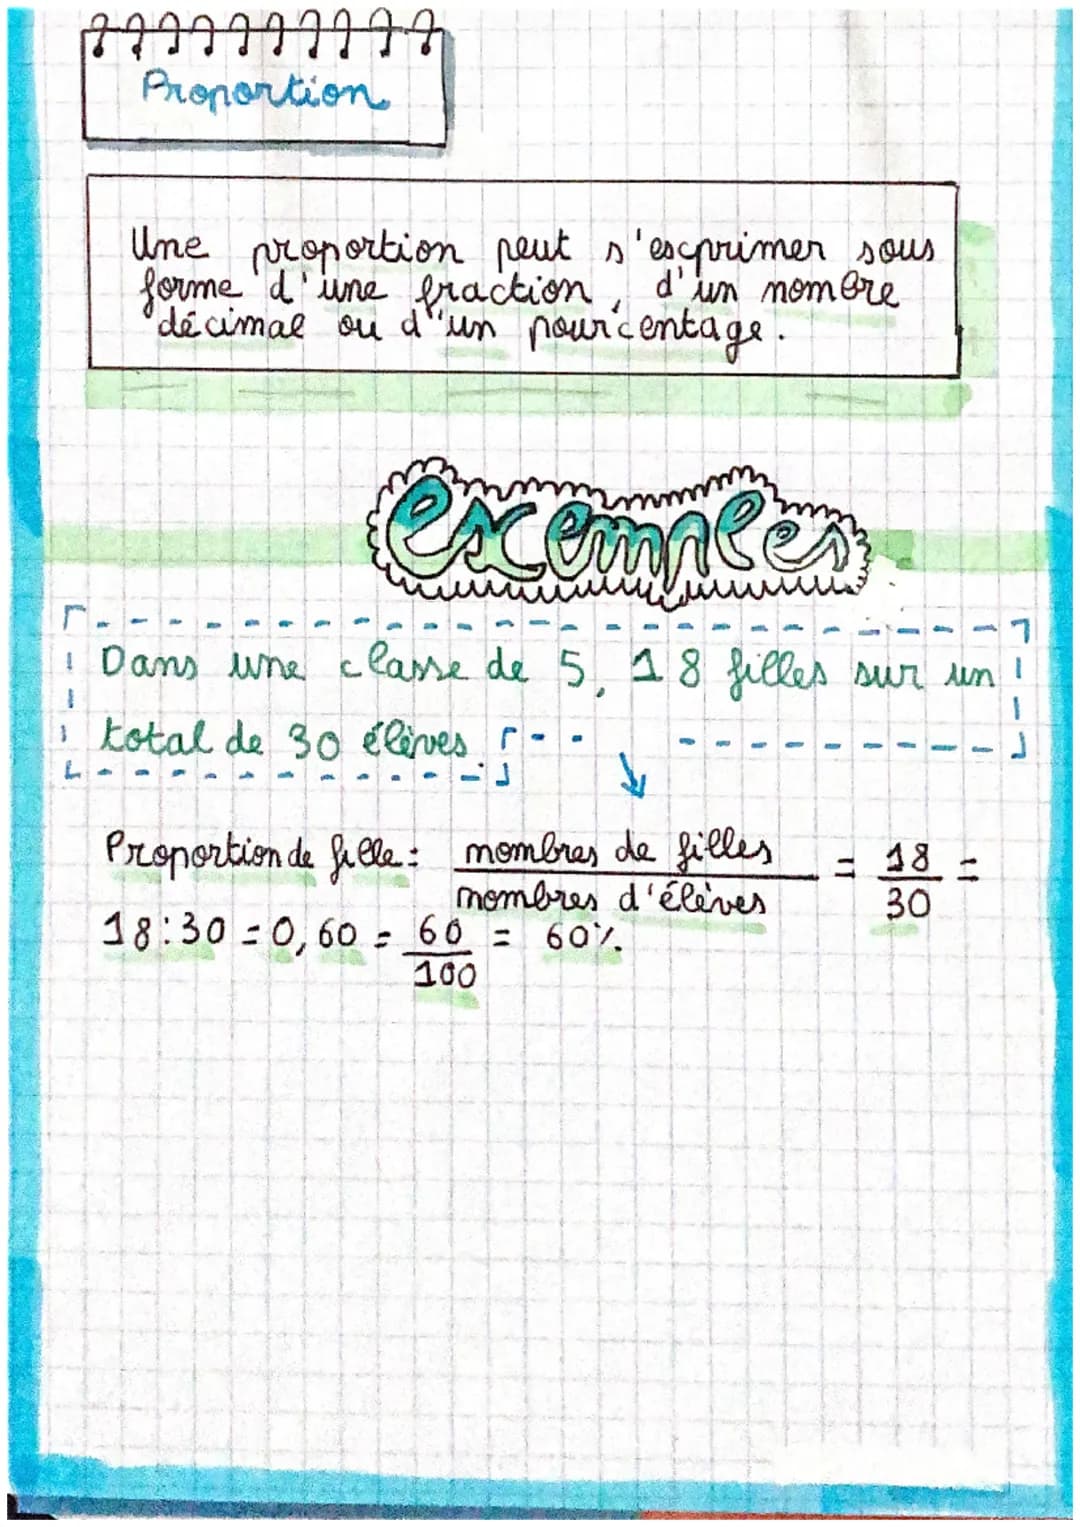 Proportion
Une proportion peut s'exprimer sous
forme d'une fraction, d'un nombre
décimal ou d'un pourcentage.
exemples
Dans une classe de 5, 18 filles sur un
total de 30 élèves.
Proportion de fille : nombres de filles / nombres d'élèves = 18/30 =
18:30 = 0,60 = 60/100 = 60%.